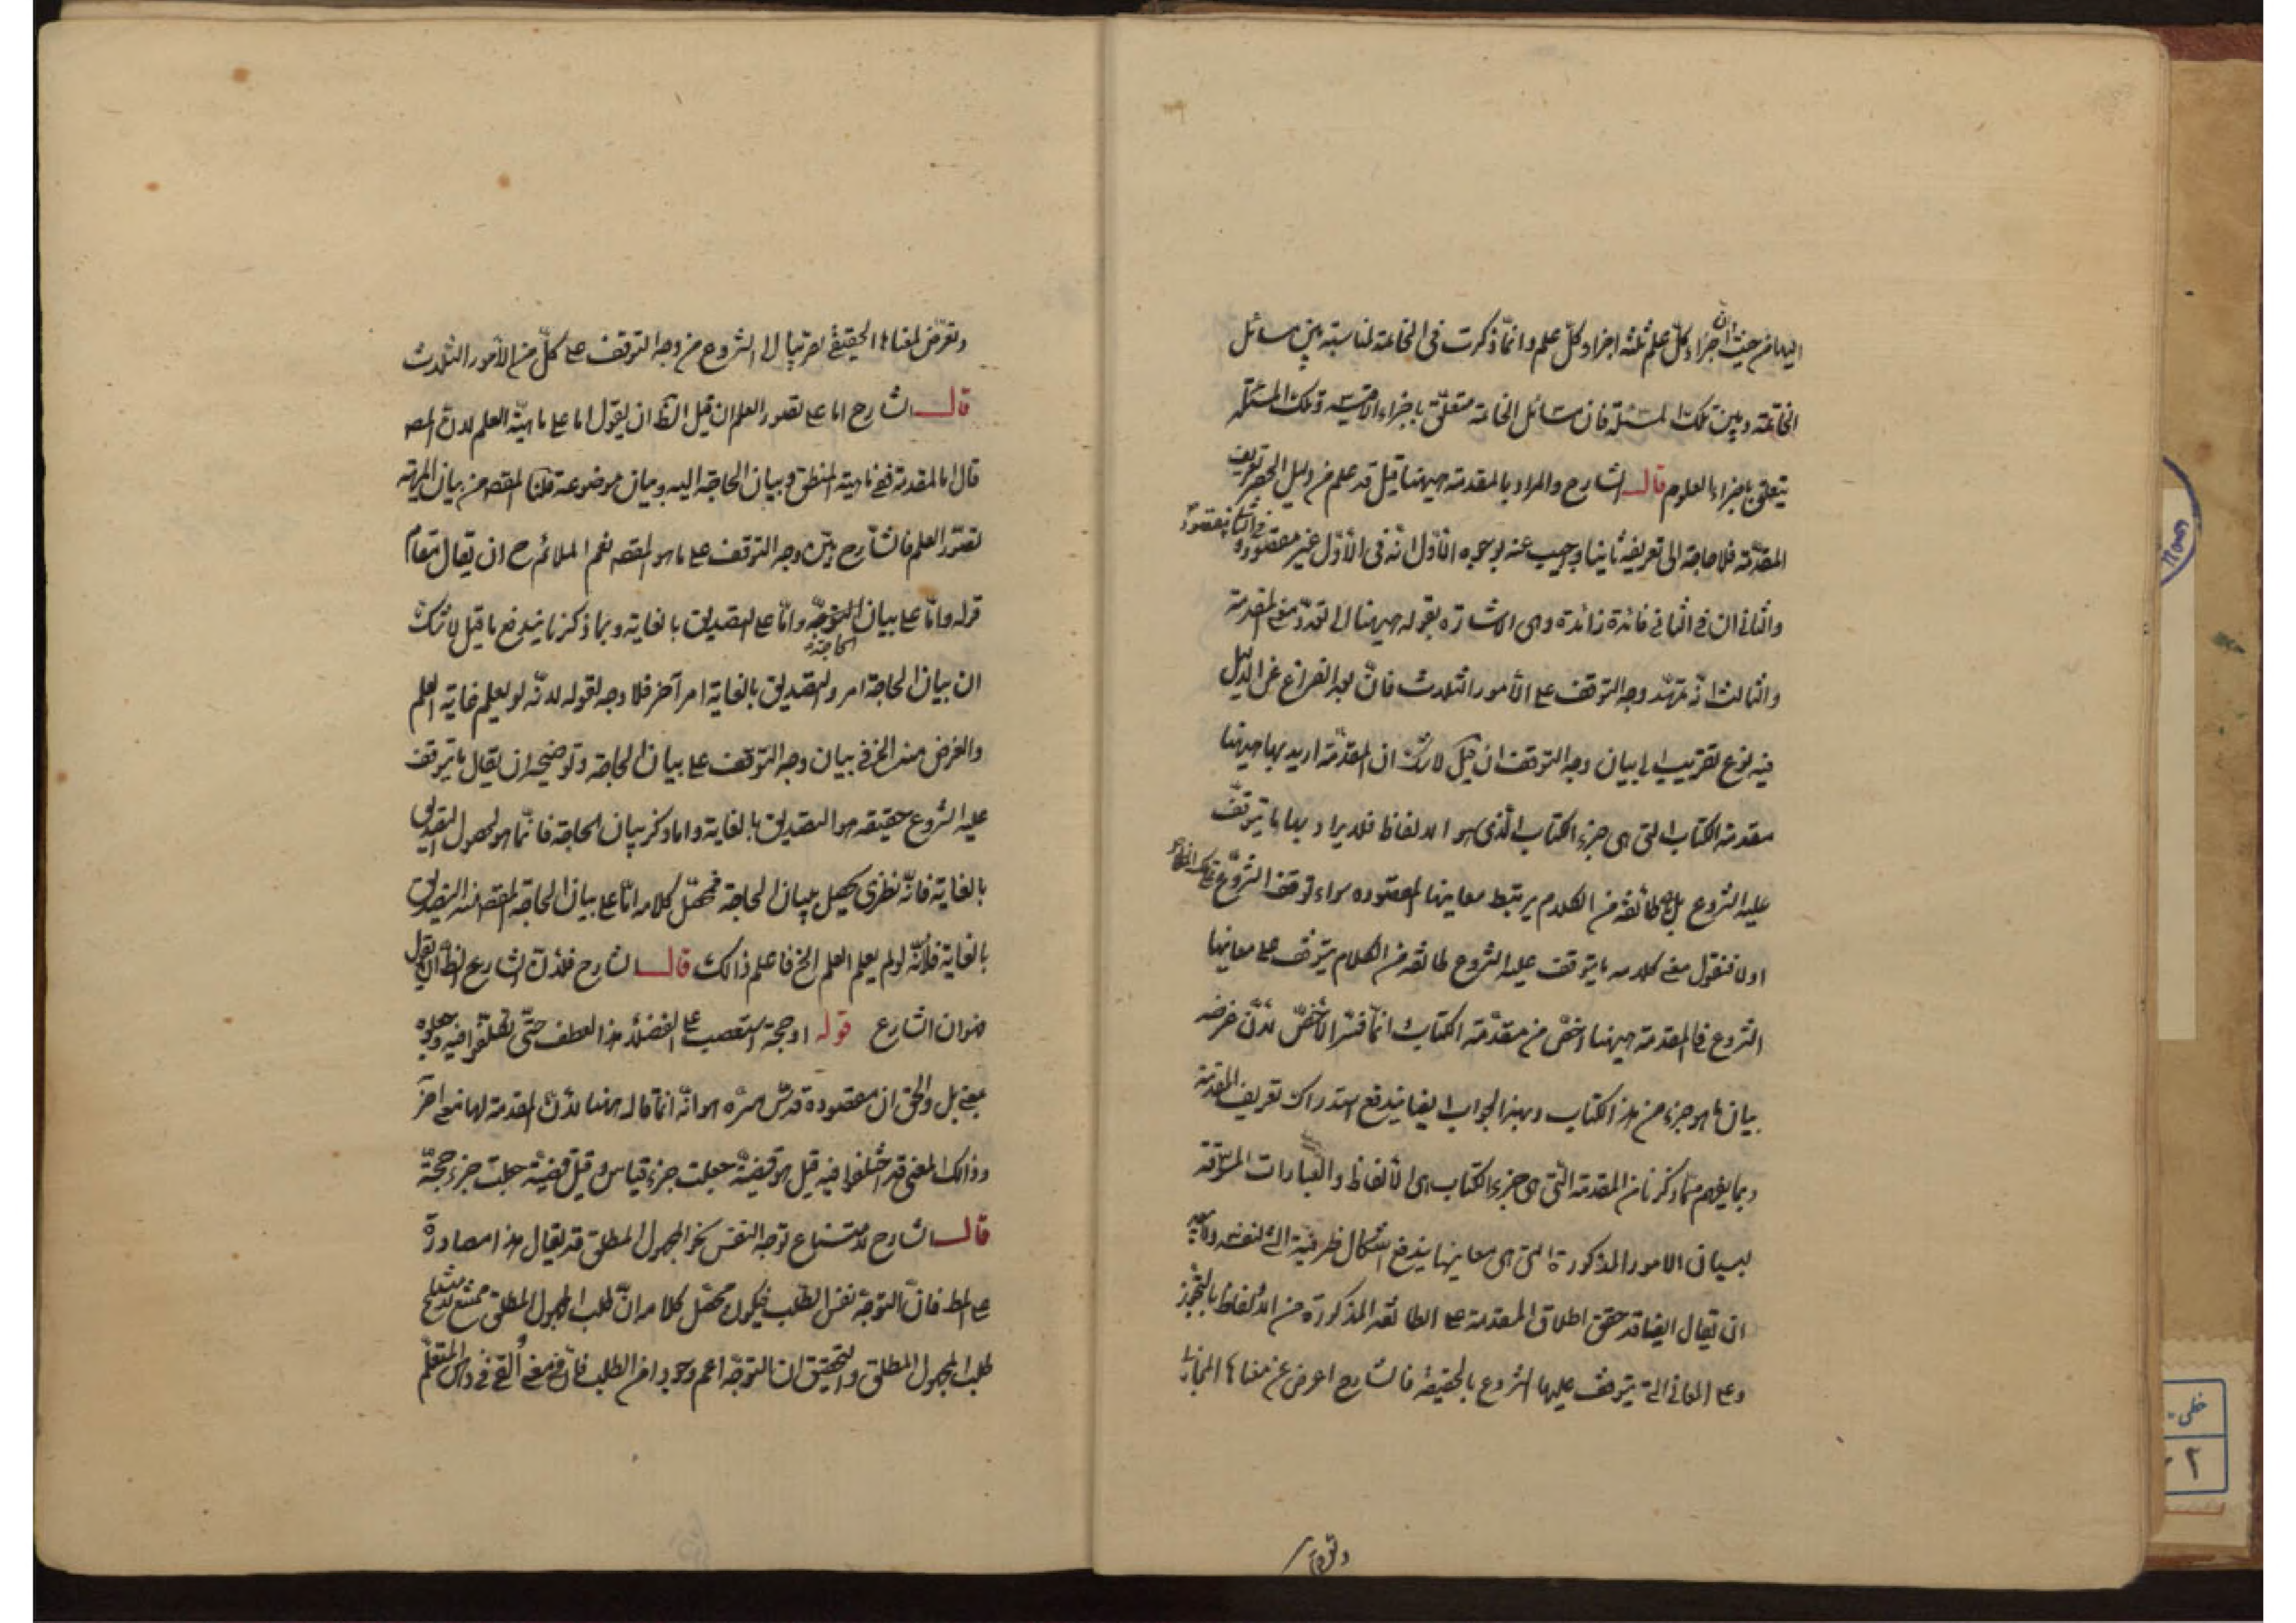 اليها من حيث ان اجزاء كلّ علم ثلثه اجزاء كلّ علم وانّما ذكرت فى الخاتمة لمناسبته بين مسائل
الخاتمة وبين تلك المسئلة فان مسائل الخاتمة متعلّق باجزاء الاقيسة وتلك المسئلة
يتعلق باجزاء العلوم قال الشارح والمراد بالمقدمة ههنا قيل قد علم من دليل الحصر تعريف
المقدّمة فلا حاجة الى تعريفه ثانيا واجيب عنه بوجوه الأوّل انّه فى الأوّل غير مقصود وفى الثانى مقصود
والثانى ان فى الثانى فائدة زائدة وهى الاشارة بقوله ههنا الى تعدّد معنى المقدمة
والثالث انّه تمهّد وجه التوقف على الأمور الثلاث فانّ بعد الفراغ عن الدليل
فيه نوع تقريب الى بيان وجه التوقف ان قيل لا شك ان المقدّمة اريد بها ههنا
مقدمة الكتاب التى هى جزء الكتاب الّذى هو الالفاظ فلا يراد بها ما يتوقّف
عليه الشروع بل طائفة من الكلام يرتبط معانيها المقصوده سواء توقف الشروع على تلك المعانى
اولا فنقول معنى كلامه ما يتوقف عليه الشروع طائفة من الكلام يتوقف على معانيها
الشروع فالمقدمة ههنا اخصّ من مقدّمة الكتاب انّما فسّر الأخصّ لأنّ غرضه
بيان ما هو جزء من هذا الكتاب وبهذا الجواب ايضا يندفع استدراك تعريف المقدمة
وبما يفهم ممّا ذكرنا من المقدمة الّتى هى جزء الكتاب هى الألفاظ والعبارات المسوقة
لبيان الامور المذكورة التى هى معانيها يندفع اشكال ظرفية الشئ لنفسه ولا يبعد
ان يقال ايضا قد حقق اطلاق المقدمة على الطائفة المذكورة من الالفاظ بالتجوّز
وعلى المعانى التى يتوقف عليها الشروع بالحقيقة فالشارح اعرض عن معناها المجازى
وتعرّض
وتعرّض لمعناها الحقيقى تقريبا الى الشروع من وجه التوقف على كلّ من الأمور الثلاث
قال الشارح اما على تصور العلم ان قيل الظ ان يقول اما على ماهيّة العلم لان المص
قال اما المقدمة ففى ماهية المنطق وبيان الحاجة اليه وبيان موضوعه قلنا المقصود من بيان المهية
تصوّر العلم فالشارح بيّن وجه التوقف على ما هو المقصد نعم الملائم ح ان يقال مقام
قوله وامّا على بيان الحاجة وامّا على التصديق بالغاية وبما ذكرنا يندفع ما قيل لا شك
ان بيان الحاجة امر والتصديق بالغاية امر آخر فلا وجه لقوله لانّه لو لم يعلم غاية العلم
والغرض منه الخ فى بيان وجه التوقف على بيان الحاجة وتوضيحه ان يقال ما يتوقف
عليه الشروع حقيقة هو التصديق بالغاية واما ذكر بيان الحاجة فانّما هو لحصول التصديق
بالغاية فانّه نظرى يحصل ببيان الحاجة فمحصّل كلامه امّا على بيان الحاجة المقصد منه التصديق
بالغاية فلانّه لو لم يعلم العلم الخ فاعلم ذالك قال الشارح فلأن الشارع الظ ان يقول
هو ان الشارع قوله او حجة استصعب على الفضلاء هذا العطف حتّى تكلّفوا فيه وجعلوه
بمعنى بل والحق ان مقصوده قدّس سرّه هو انّه انّما قاله ههنا لأنّ المقدمة لها معنى آخر
وذالك المعنى قد اختلفوا فيه قيل هو قضيّة جعلت جزء قياس وقيل قضيّة جعلت جزء حجّة
قال الشارح لامتناع توجه النفس نحو المجهول المطلق قد يقال هذا مصادرة
على المط فانّ التوجّه نفس الطّلب فيكون محصّل كلامه انّ طلب المجهول المطلق ممتنع لامتناع
طلب المجهول المطلق والتحقيق ان التوجّه اعم وجودا من الطلب فانّ من معنى القى فى ذهن المتعلّم